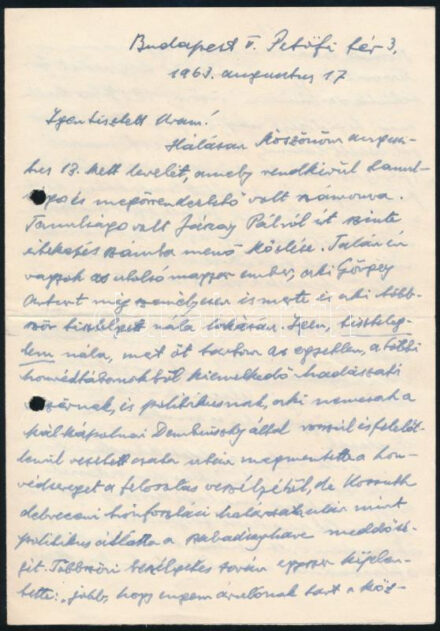 Budapest V. Petőfi tér 3.
1963. augusztus 17
Igen tisztelt Uram!
Hálásan köszönöm augusz-
tus 13. kelt levelét, amely rendkívül tanul-
ságos és megörvendeztető volt számomra.
Tanulságos volt Jászay Pálról írt szinte
értekezés számba menő közlése. Talán én
vagyok az utolsó magyar ember, aki Görgey
Arturt még személyesen ismerte és aki több-
ször tisztelgett nála lakásán. Igen, tiszteleg-
tem nála, mert őt tartom az egyetlen, a többi
honvédtábornokból kiemelkedő hadászati
vezérnek, és politikusnak, aki nemcsak a
kál-kápolnai Dembinszky által rosszul és felelőt-
lenül vezetett csata után megmentette a hon-
védsereget a feloszlás veszélyétől, de Kossuth
debreceni trónfosztási határozata után mint
politikus átlátta a szabadságharc meddősé-
gét. Többszöri beszélgetés során egyszer kijelen-
tette: „jobb, hogy engem árulónak tart a köz-